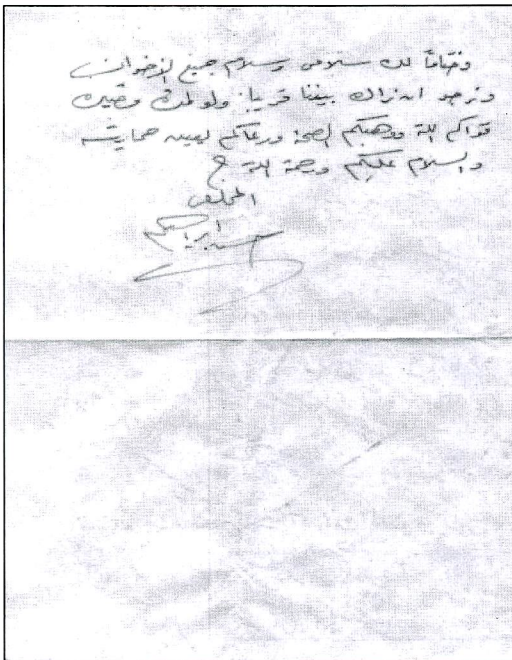 وختاماً لك سلامي وسلام جميع الإخوان
ونرجو ان نراك بيننا قريبا ولو لمدة قصيرة
قواكم الله ووهبكم الصحة ورعاكم بعين حمايته
والسلام عليكم ورحمة الله
المخلص
ابراهيم